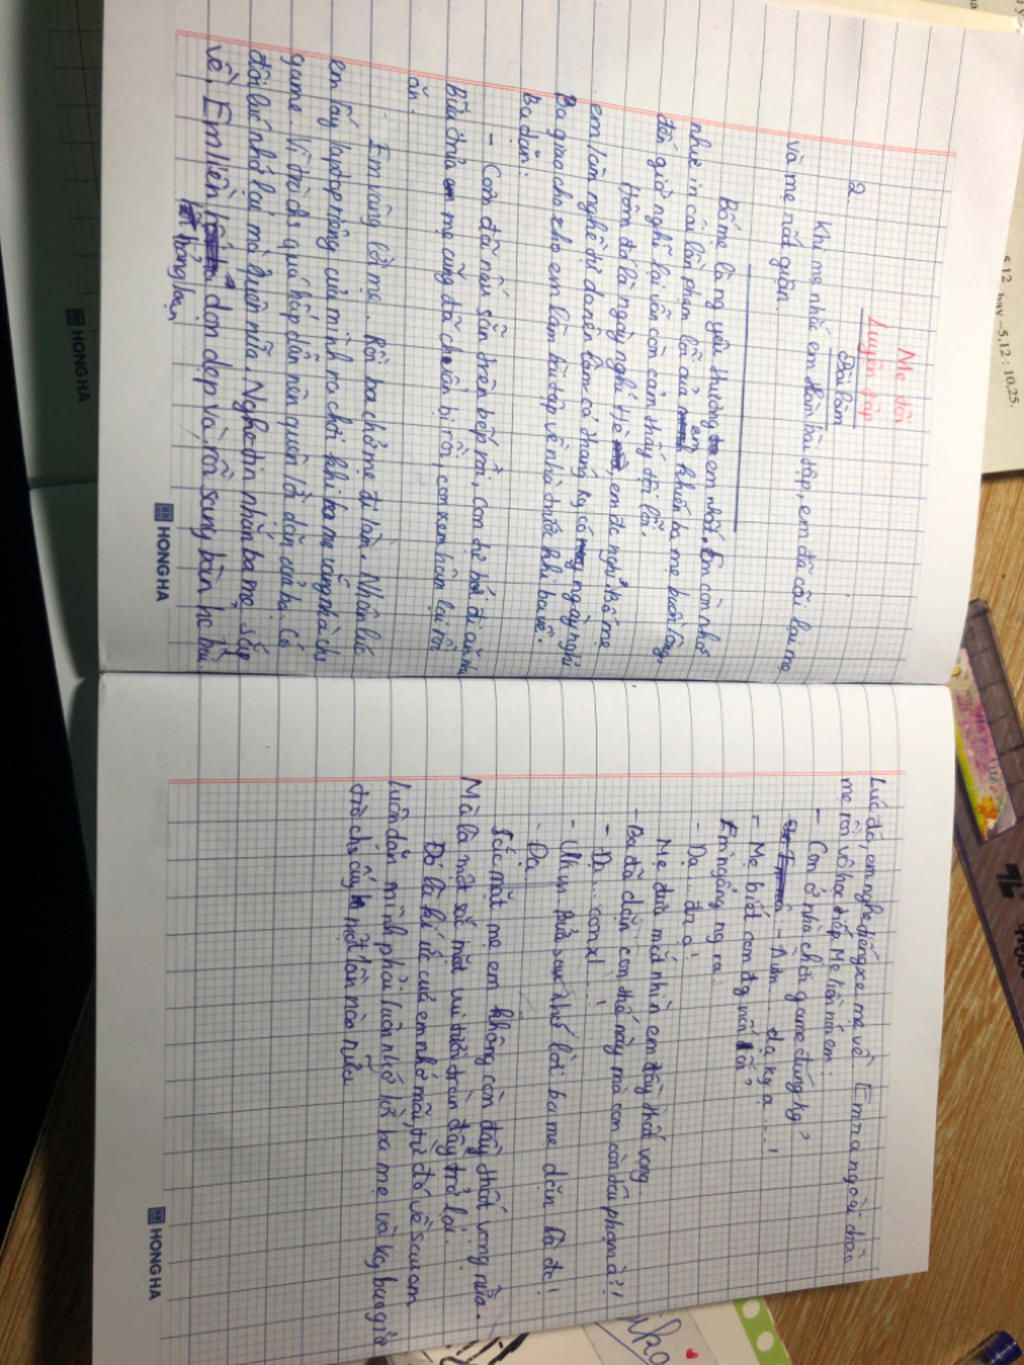 Mẹ đòi
Luyện tập
Bài làm
2.
Khi mẹ nhắc em làm bài tập, em đã cãi lại mẹ
và mẹ nổi giận.
Bố mẹ là ng yêu thương em nhất. Em còn nhớ
như in cái lần phạm lỗi của em khiến ba mẹ buồn lòng,
đến giờ nghĩ lại vẫn còn cảm thấy tội lỗi.
Hôm đó là ngày nghỉ, em đc nghỉ. Bố mẹ
em làm nghề tự do nên làm cả tháng kg có ngày nghỉ
Ba giao cho em làm bài tập về nhà trước khi ba về.
Ba dặn:
- Con đã nấu sẵn trên bếp rồi, con đi ăn
Bữa trưa mẹ cũng đã chuẩn bị rồi, con xem hâm lại rồi
ăn.
Em vâng lời mẹ. Rồi ba chở mẹ đi làm. Nhân lúc
em lấy laptop riêng của mình ra chơi khi ba mẹ vắng nhà chơi
game. Vì trò chơi quá hấp dẫn nên quên lời dặn của ba. Có
đôi lúc nhớ lại mà quên nữa. Nghe tin nhắn ba mẹ sắp
về, Em liền dọn dẹp và rồi sang bàn học bài.
Lúc đó, em nghe tiếng xe mẹ về. Em ra ngoài chào
mẹ rồi vô học tiếp. Mẹ liền nói em:
- Con ở nhà chơi game đúng kg?
- Dạ kg ạ...!
- Mẹ biết con đg nói dối?
Em ngáng ng ra:
- Dạ... dạ ạ!
Mẹ đưa mắt nhìn em đầy thất vọng
- Ba đã dặn con thế này mà con còn tái phạm à?!
- Dạ... con xl...!
- Uhm. Bữa sau nhớ lời ba mẹ dặn là đc!
- Dạ
Sắc mặt mẹ em không còn đầy thất vọng nữa.
Mà là một sắc mặt vui tươi tràn đầy trở lại.
Đó là kí ức của em nhớ mãi, từ đó về sau em
luôn dặn mình phải luôn nhớ lời ba mẹ và kg bao giờ
một lần nào nữa
HONG HA
HONG HA
HONG HA
5,12 hay -5,12 : 10,25.